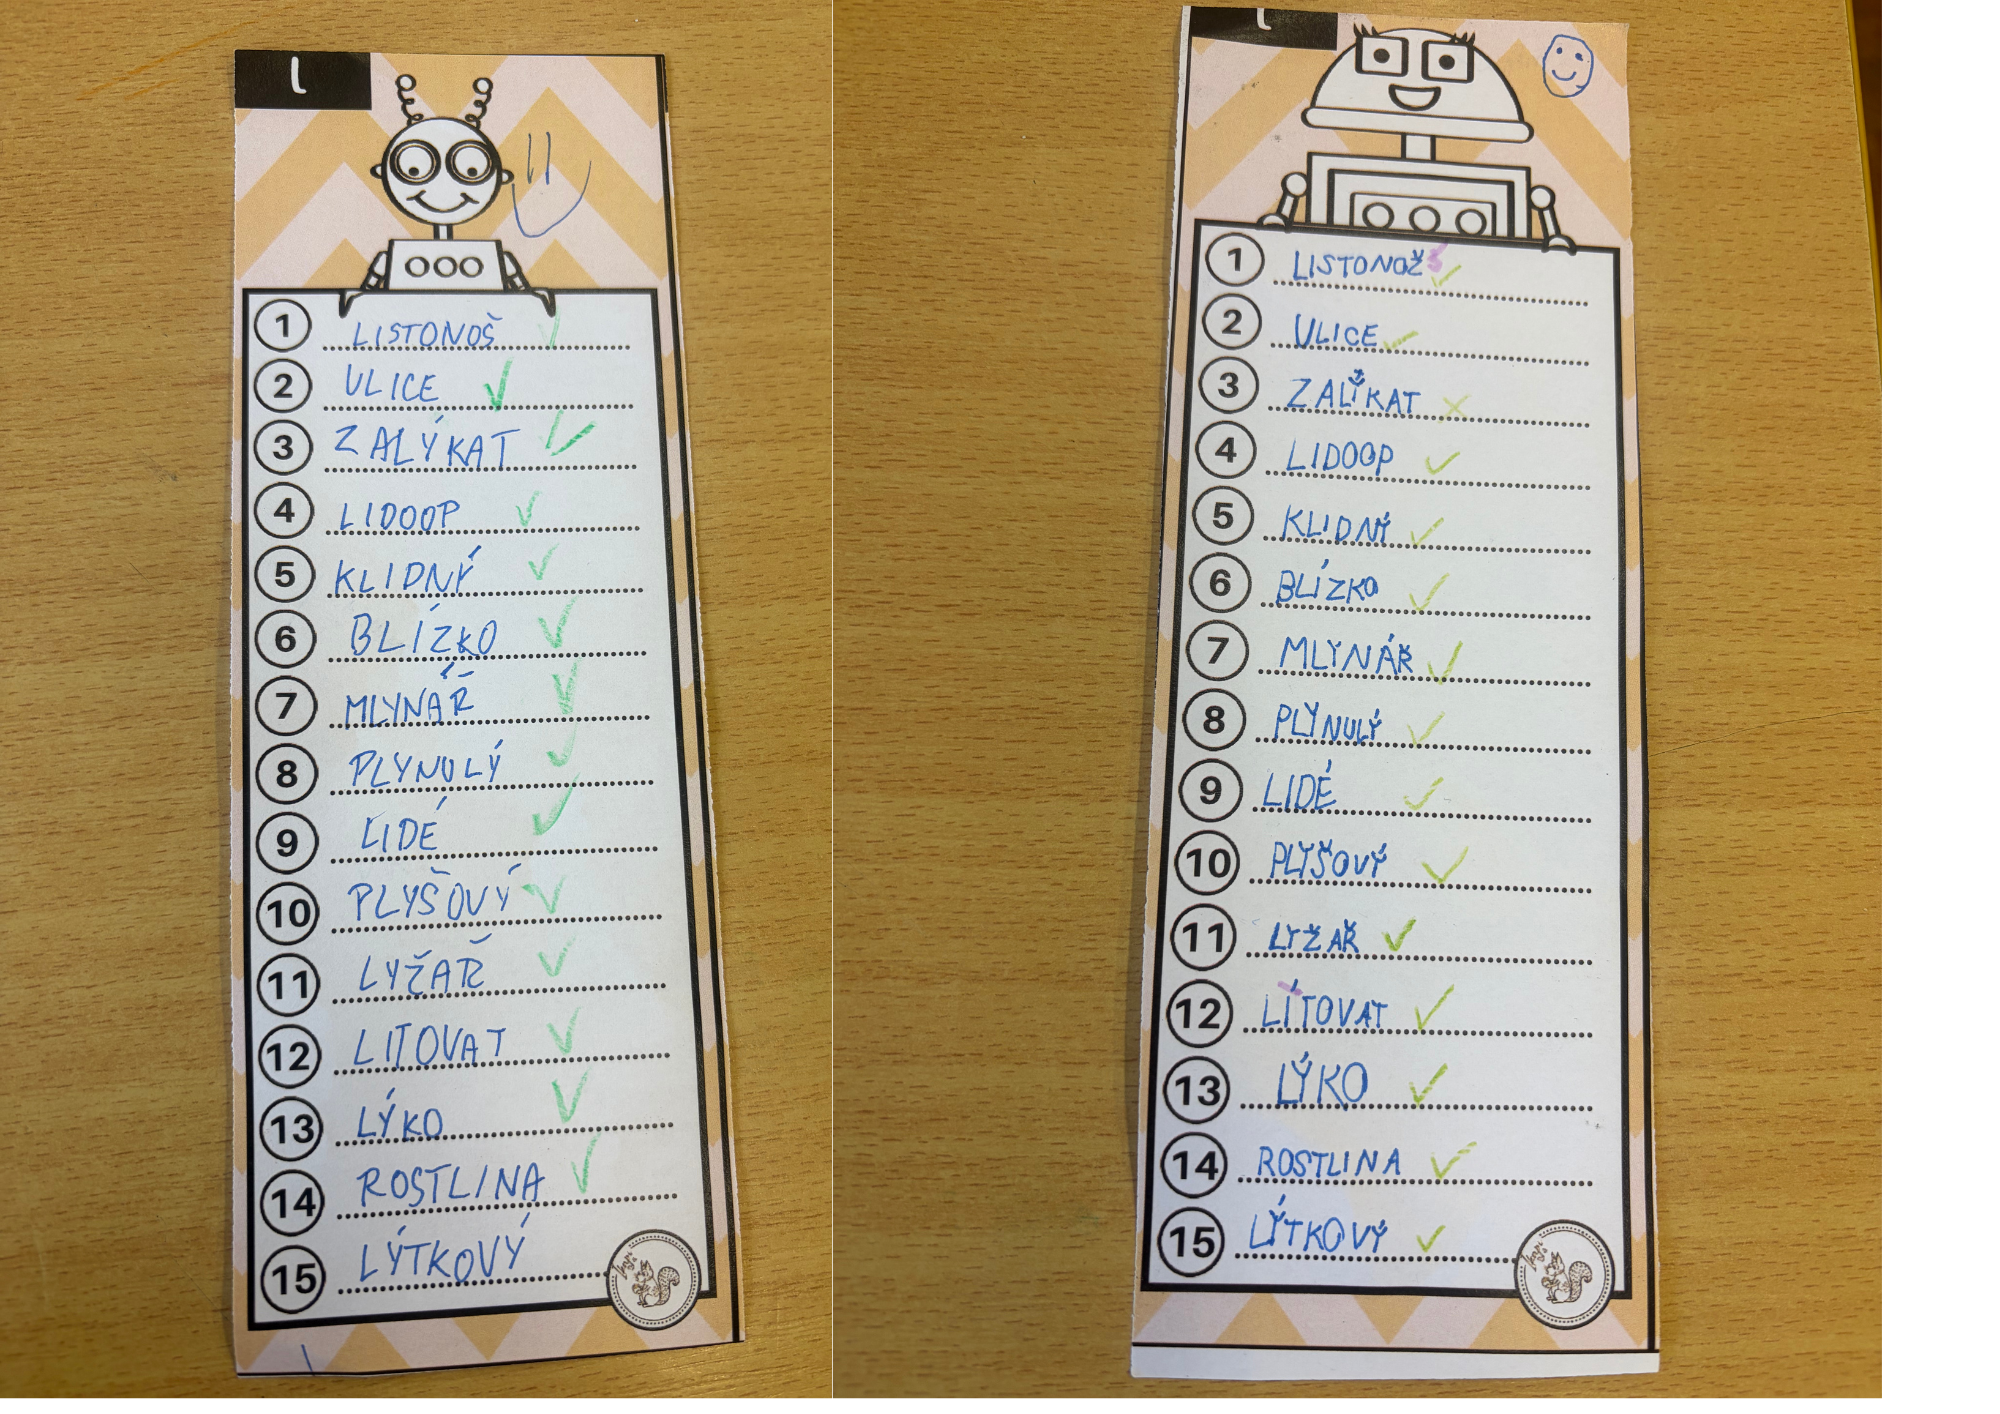 l
1 LISTONOŠ
2 ULICE
3 ZALÝKAT
4 LIDOOP
5 KLIDNÝ
6 BLÍZKO
7 MLYNÁŘ
8 PLYNULÝ
9 LIDÉ
10 PLYŠOVÝ
11 LYŽAŘ
12 LITOVAT
13 LÝKO
14 ROSTLINA
15 LÝTKOVÝ
l
1 LISTONOŽ
2 ULICE
3 ZALÍKAT
4 LIDOOP
5 KLIDNÝ
6 BLÍZKO
7 MLYNÁŘ
8 PLYNULÝ
9 LIDÉ
10 PLYŠOVÝ
11 LYŽAŘ
12 LÍTOVAT
13 LÝKO
14 ROSTLINA
15 LÝTKOVÝ